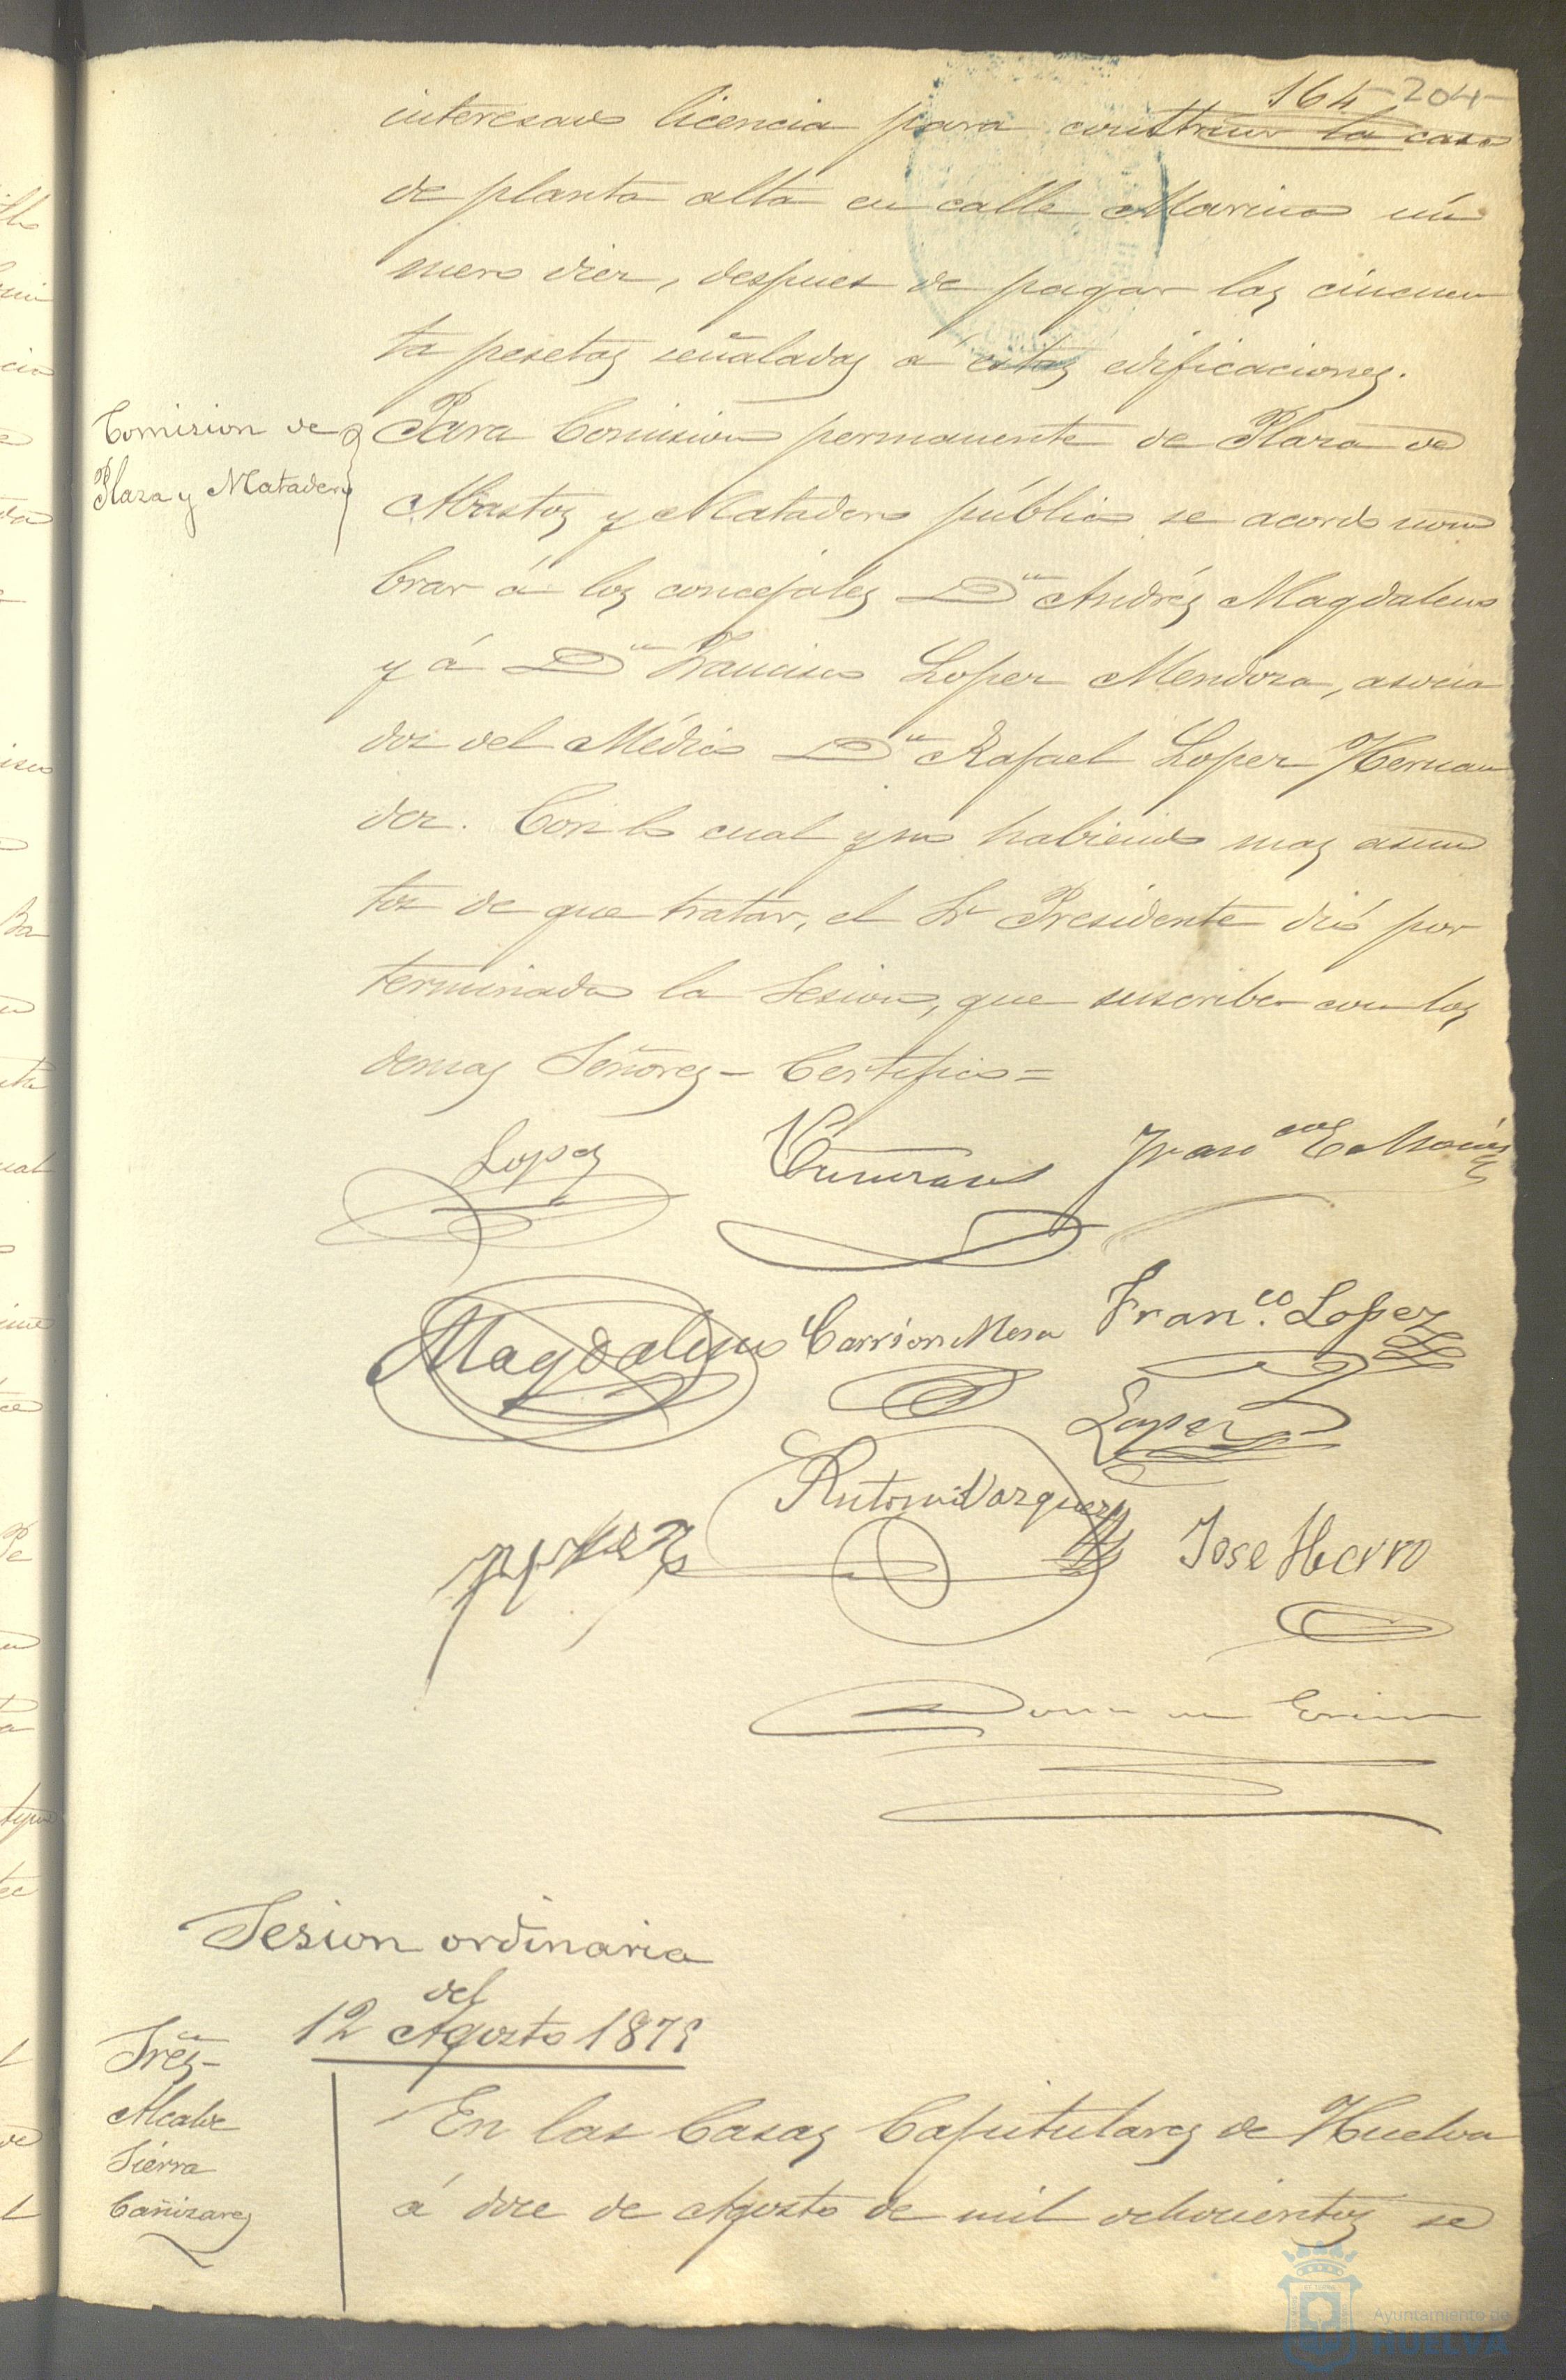 164 204
interesado licencia para construir la casa
de planta alta en calle Marina nú
mero diez, despues de pagar las cincuen
ta pesetas señaladas á estas edificaciones.
Comision de
Plaza y Matadero
Para Comision permanente de Plaza de
Abastos y Matadero público se acordó nom
brar á los concejales Dn Andrés Magdaleno
y á Dn Francisco Lopez Mendoza, asocia
dos del Médico Dn Rafael Lopez Hernan
dez. Con lo cual y no habiendo mas asun
tos de que tratar, el Sr Presidente dió por
terminada la Sesion, que suscribe con los
demas Señores - Certifico =
Lopez
Franco E
Magdaleno Carrion Mesa Franco. Lopez
Lopez
Antonio Vazquez
Jose Hierro
Sesion ordinaria
del
12 Agosto 1879
Sres-
Alcalde
Sierra
Cañizares
En las Casas Capitulares de Huelva
á doce de Agosto de mil ochocientos se
Ayuntamiento de
HUELVA